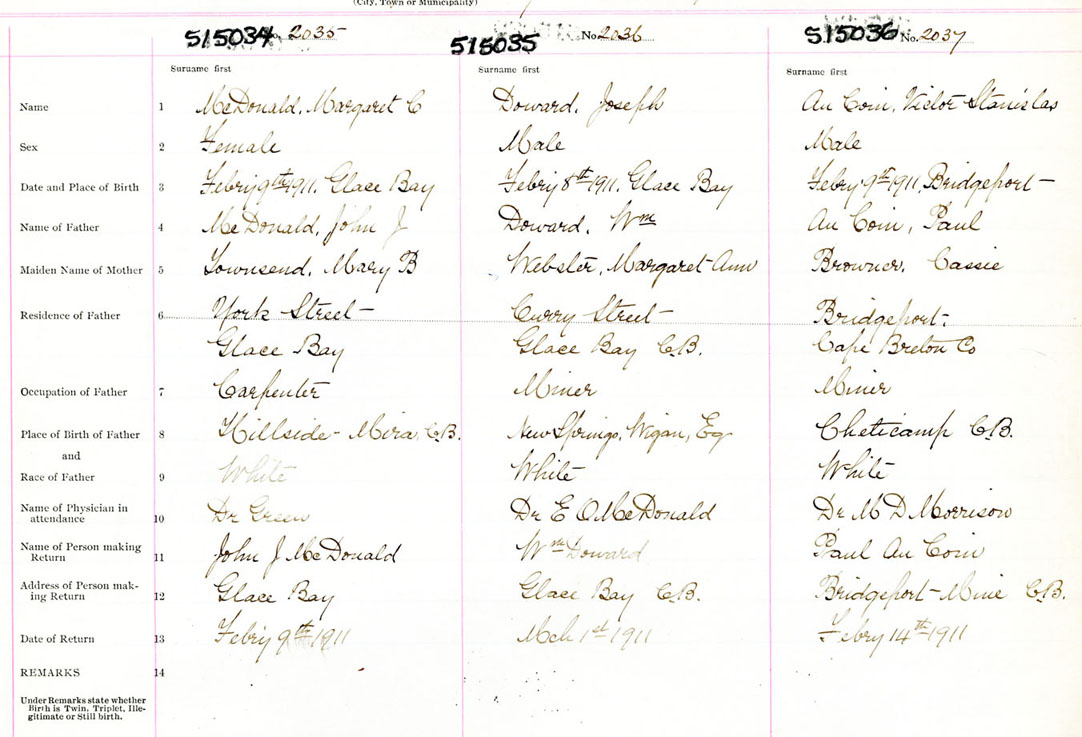 (City, Town or Municipality)
515034 No. 2035 515035 No. 2036 515036 No. 2037
Surname first Surname first Surname first
Name 1 McDonald, Margaret C Doward, Joseph Au Coin, Victor Stanislas
Sex 2 Female Male Male
Date and Place of Birth 3 Febry 9th 1911, Glace Bay Febry 8th 1911, Glace Bay Febry 9th 1911, Bridgeport
Name of Father 4 McDonald, John J Doward, Wm Au Coin, Paul
Maiden Name of Mother 5 Townsend, Mary B Webster, Margaret Ann Browner, Cassie
Residence of Father 6 York Street Curry Street Bridgeport.
Glace Bay Glace Bay C.B. Cape Breton Co
Occupation of Father 7 Carpenter Miner Miner
Place of Birth of Father 8 Hillside - Mira, C.B. New Springs, Wigan, Eg Cheticamp C.B.
and
Race of Father 9 White White White
Name of Physician in
attendance 10 Dr Green Dr E O McDonald Dr M D Morrison
Name of Person making
Return 11 John J McDonald Wm Doward Paul Au Coin
Address of Person mak-
ing Return 12 Glace Bay Glace Bay C.B. Bridgeport - Mine C.B.
Date of Return 13 Febry 9th 1911 Mch 1st 1911 Febry 14th 1911
REMARKS 14
Under Remarks state whether
Birth is Twin, Triplet, Ille-
gitimate or Still birth.